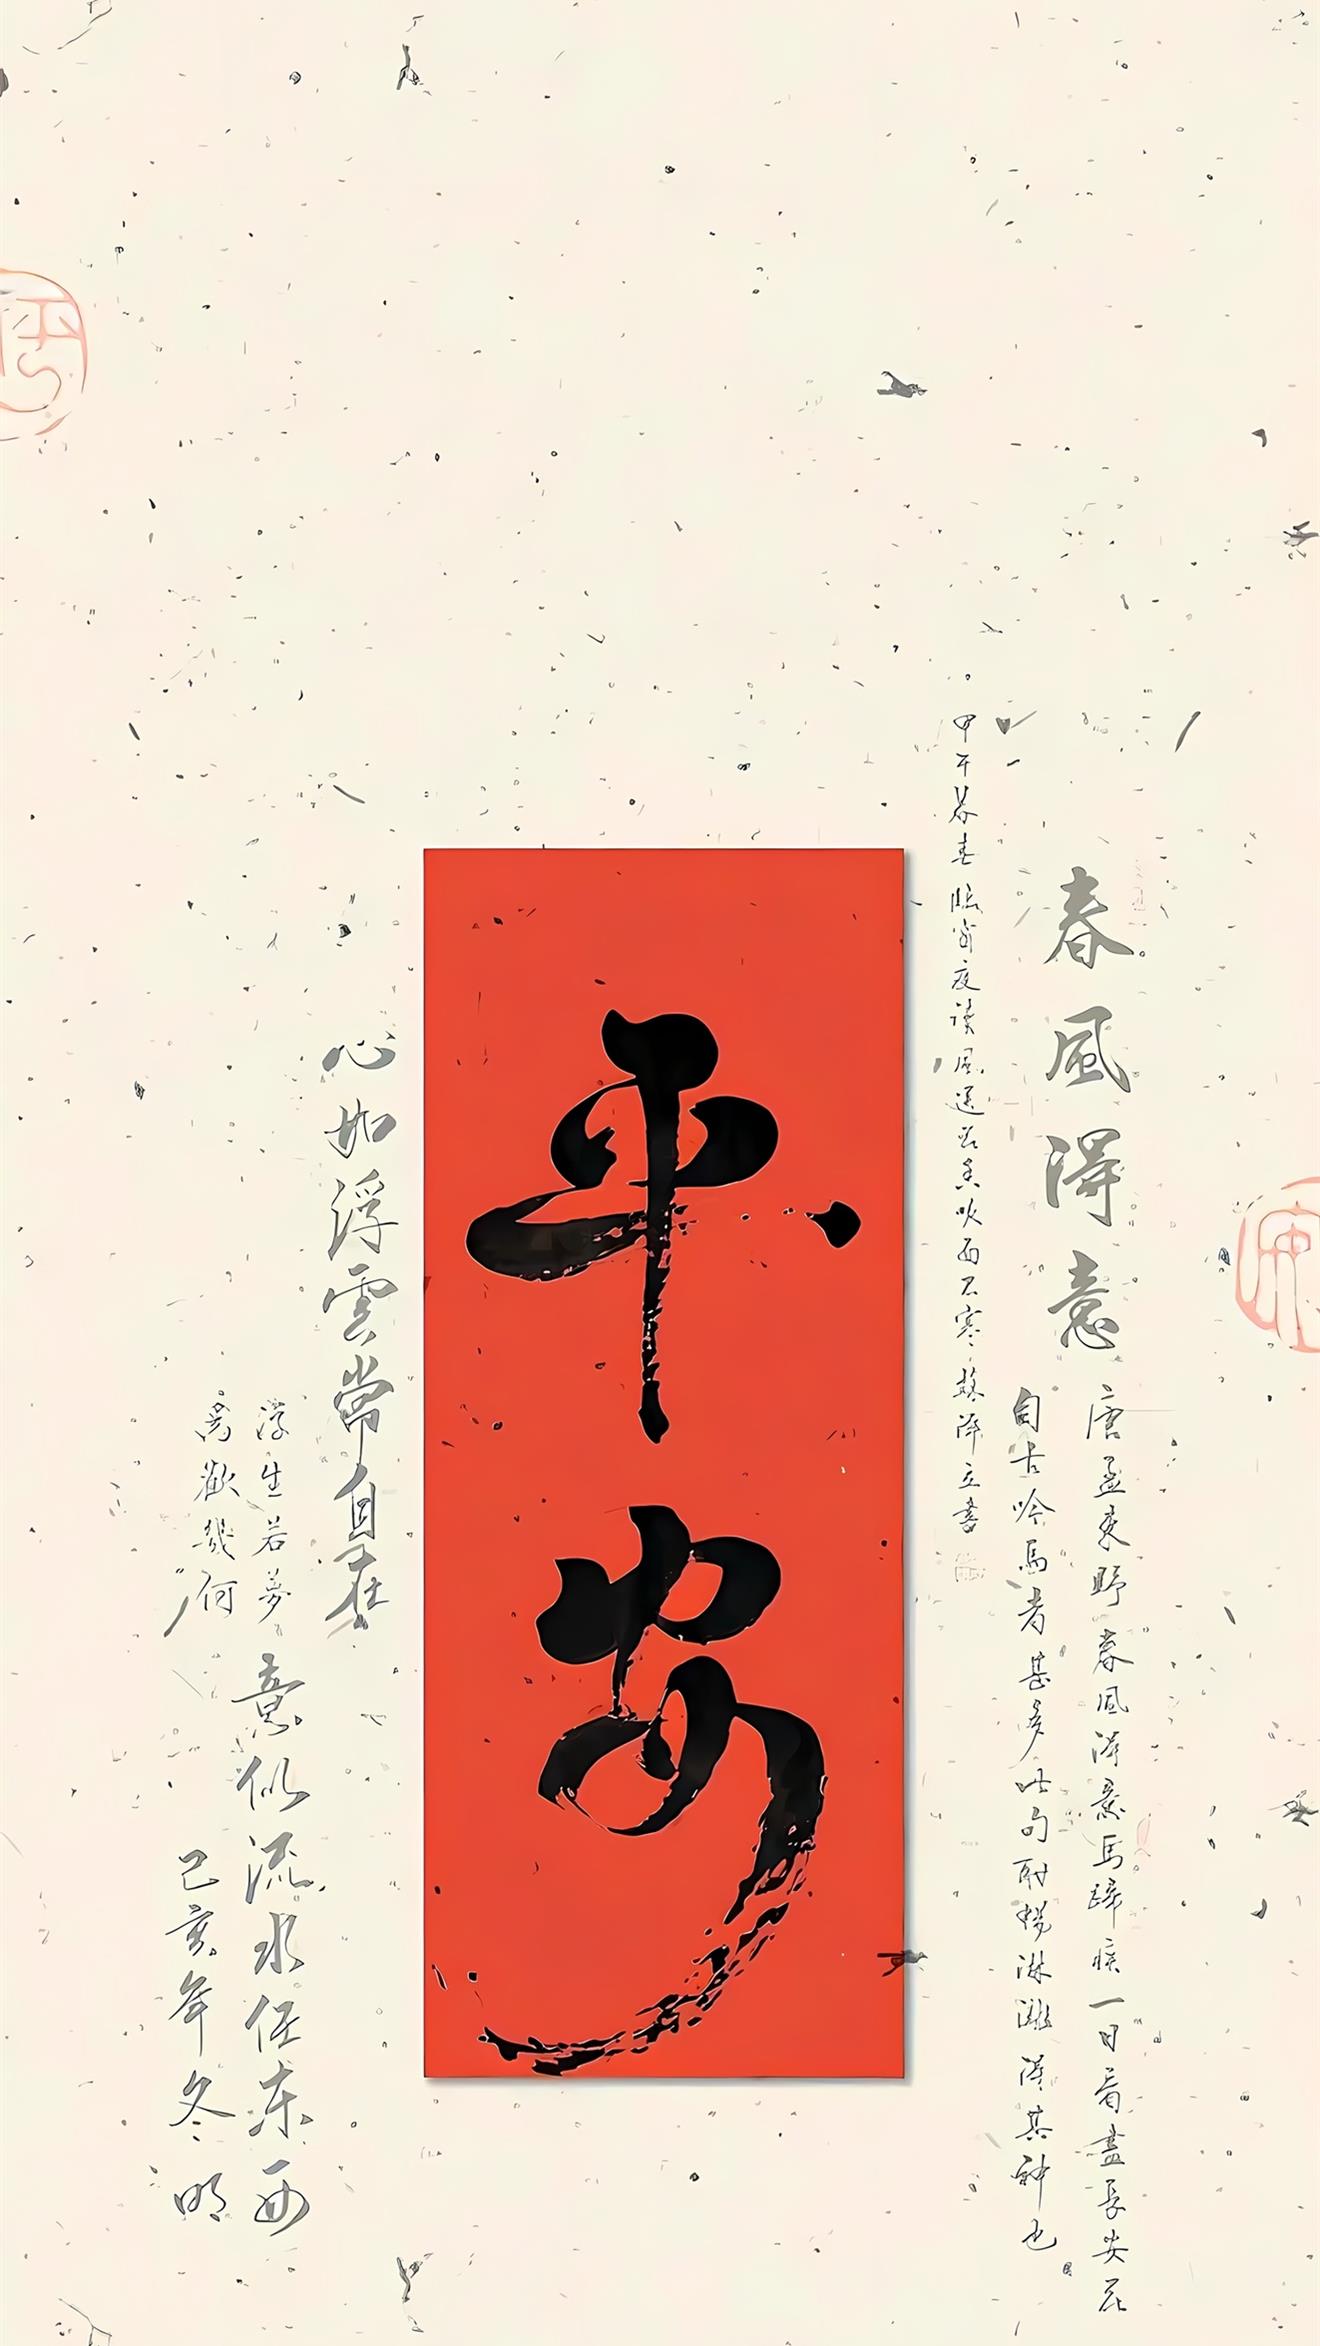 春風得意
唐孟東野春風得意馬蹄疾一日看盡長安花
自古吟馬者甚多此句酣暢淋漓得其神也
甲午暮春臨窗夜讀風送花香吹面不寒
立書
平安
心如浮雲常自在
浮生若夢
為歡幾何
意似流水任東西
己亥年冬明